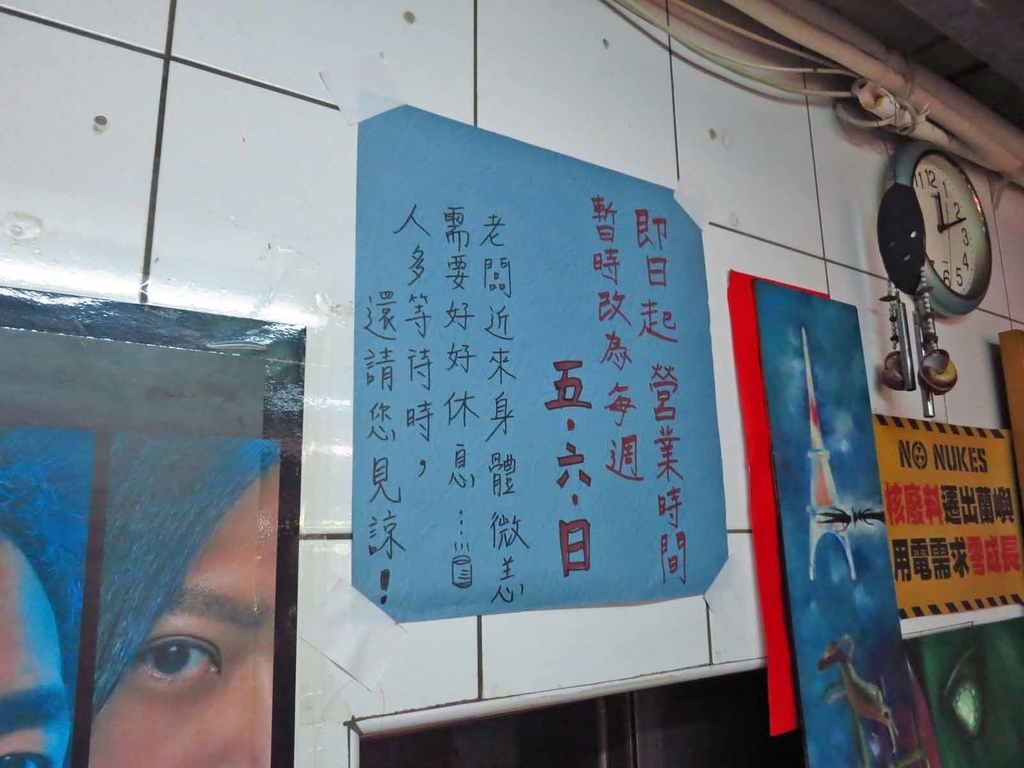 即日起 營業時間
暫時改為每週
五·六·日
老闆近來身體微恙
需要好好休息……
人多等待時，
還請您見諒！
11 12 2 3 4 5 6 7
NO NUKES
核廢料遷出蘭嶼
用電需求零成長